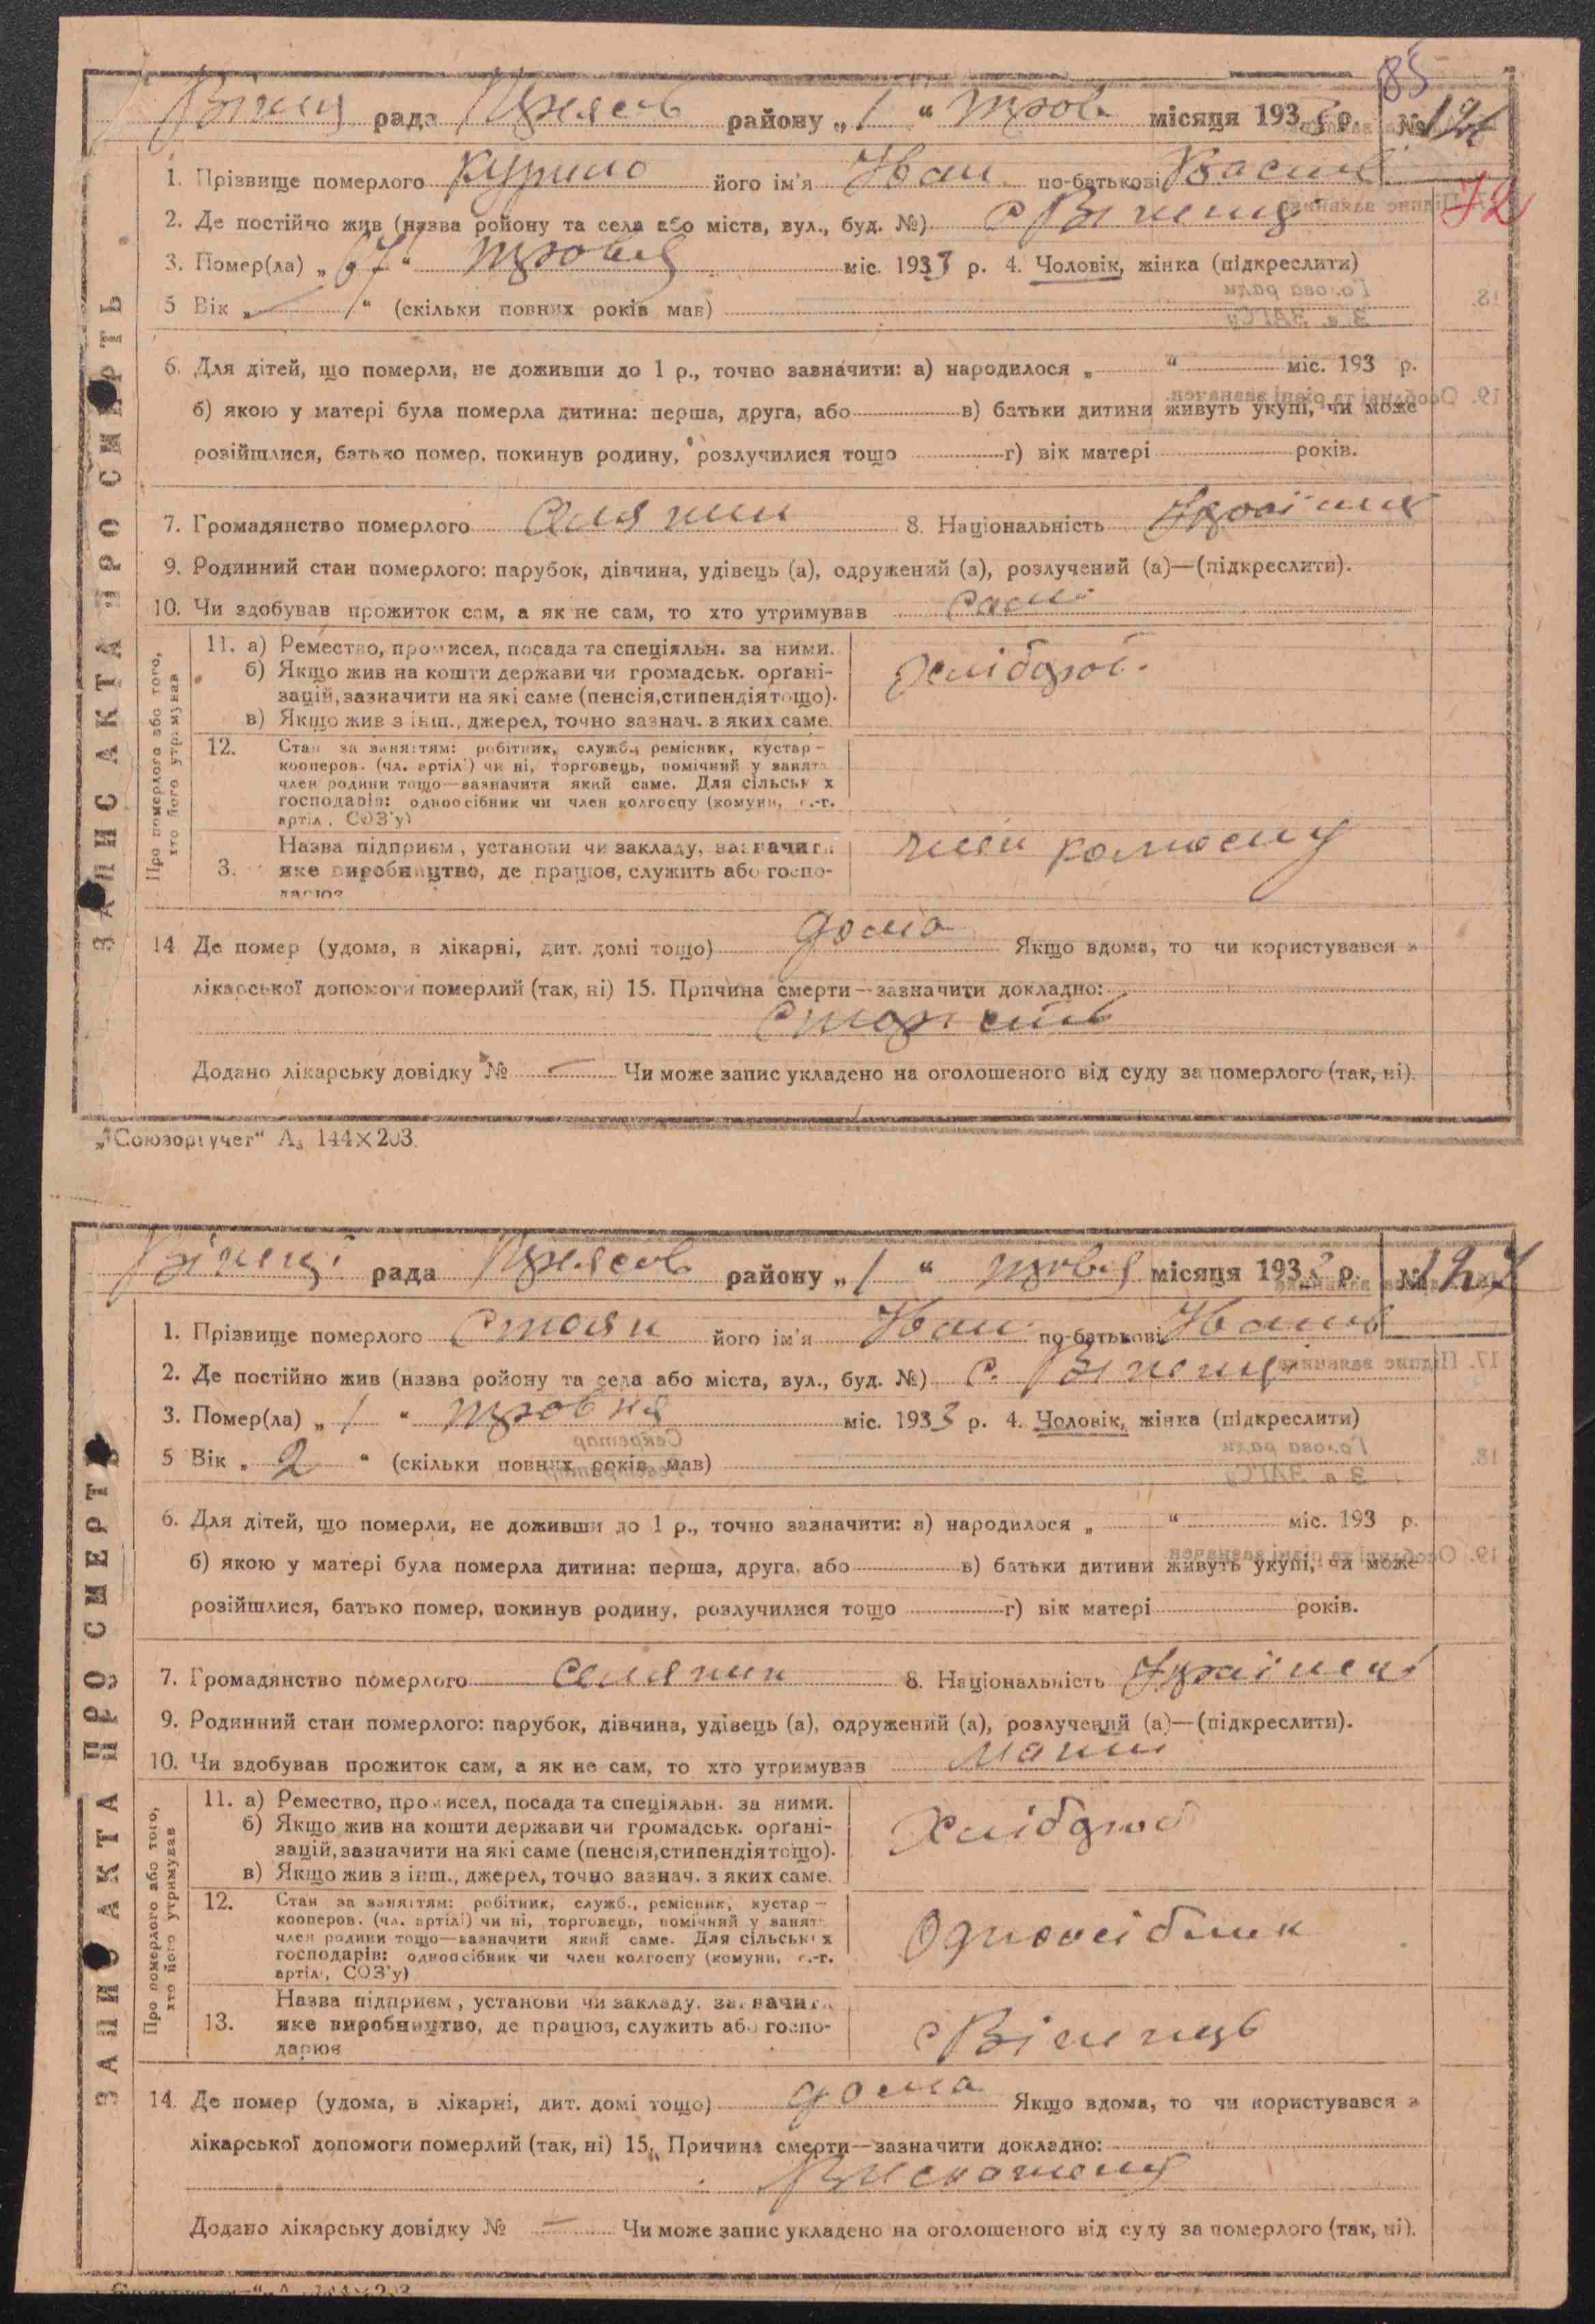 85
Вінец рада Княсев району „1“ трав місяця 1933 р. №126
ЗАПИС АКТА ПРО СМЕРТЬ
1. Прізвище померлого Курило його ім'я Іван по-батькові Васил
72
2. Де постійно жив (назва ройону та села або міста, вул., буд. №) с Віненці
3. Помер(ла) „ “ травня міс. 1933 р. 4. Чоловік, жінка (підкреслити)
5 Вік „ “ (скільки повних років мав)
6. Для дітей, що померли, не доживши до 1 р., точно зазначити: а) народилося „ “ міс. 193 р.
б) якою у матері була померла дитина: перша, друга, або в) батьки дитини живуть укупі, чи може
розійшлися, батько помер, покинув родину, розлучилися тощо г) вік матері років.
7. Громадянство померлого Селянин 8. Національність Україниц
9. Родинний стан померлого: парубок, дівчина, удівець (а), одружений (а), розлучений (а)—(підкреслити).
10. Чи здобував прожиток сам, а як не сам, то хто утримував Сам
Про померлого або того, хто його утримував
11. а) Ремество, промисел, посада та спеціяльн. за ними.
б) Якщо жив на кошти держави чи громадськ. орґані-
зацій, зазначити на які саме (пенсія, стипендія тощо).
в) Якщо жив з інш., джерел, точно зазнач. з яких саме.
Хлібороб
12. Стан за заняттям: робітник, служб., ремісник, кустар—
кооперов. (чл. артілі) чи ні, торговець, помічний у занят
член родини тощо—вазначити який саме. Для сільськ х
господарів: одноосібник чи член колгоспу (комуни, с.-г.
артіл., СОЗ'у)
3. Назва підприєм, установи чи закладу, зазначити
яке виробництво, де працює, служить або госпо-
дарює
член колгоспу
14 Де помер (удома, в лікарні, дит. домі тощо) дома Якщо вдома, то чи користувався з
лікарської допомоги померлий (так, ні) 15. Причина смерти—зазначити докладно:
Старість
Додано лікарську довідку № — Чи може запис укладено на оголошеного від суду за померлого (так, ні).
„Союзоргучет“ А₅ 144×203.
Вінец рада Княсев району „1“ травня місяця 1933 р. №127
ЗАПИС АКТА ПРО СМЕРТЬ
1. Прізвище померлого Стоян його ім'я Іван по-батькові Іванов
2. Де постійно жив (назва ройону та села або міста, вул., буд. №) с. Віненці
3. Помер(ла) „1“ травня міс. 1933 р. 4. Чоловік, жінка (підкреслити)
5 Вік „2“ (скільки повних років мав)
6. Для дітей, що померли, не доживши до 1 р., точно зазначити: а) народилося „ “ міс. 193 р.
б) якою у матері була померла дитина: перша, друга, або в) батьки дитини живуть укупі, чи може
розійшлися, батько помер, покинув родину, розлучилися тощо г) вік матері років.
7. Громадянство померлого селянин 8. Національність Українець
9. Родинний стан померлого: парубок, дівчина, удівець (а), одружений (а), розлучений (а)—(підкреслити).
10. Чи здобував прожиток сам, а як не сам, то хто утримував Мати
Про померлого або того, хто його утримував
11. а) Ремество, промисел, посада та спеціяльн. за ними.
б) Якщо жив на кошти держави чи громадськ. орґані-
зацій, зазначити на які саме (пенсія, стипендія тощо).
в) Якщо жив з інш., джерел, точно зазнач. з яких саме.
Хлібороб
12. Стан за заняттям: робітник, служб., ремісник, кустар—
кооперов. (чл. артілі) чи ні, торговець, помічний у занят
член родини тощо—вазначити який саме. Для сільськ х
господарів: одноосібник чи член колгоспу (комуни, с.-г.
артіл., СОЗ'у)
Одноосібник
13. Назва підприєм, установи чи закладу, зазначити
яке виробництво, де працює, служить або госпо-
дарює
с Вінець
14. Де помер (удома, в лікарні, дит. домі тощо) дома Якщо вдома, то чи користувався з
лікарської допомоги померлий (так, ні) 15. Причина смерти—зазначити докладно:
Додано лікарську довідку № — Чи може запис укладено на оголошеного від суду за померлого (так, ні).